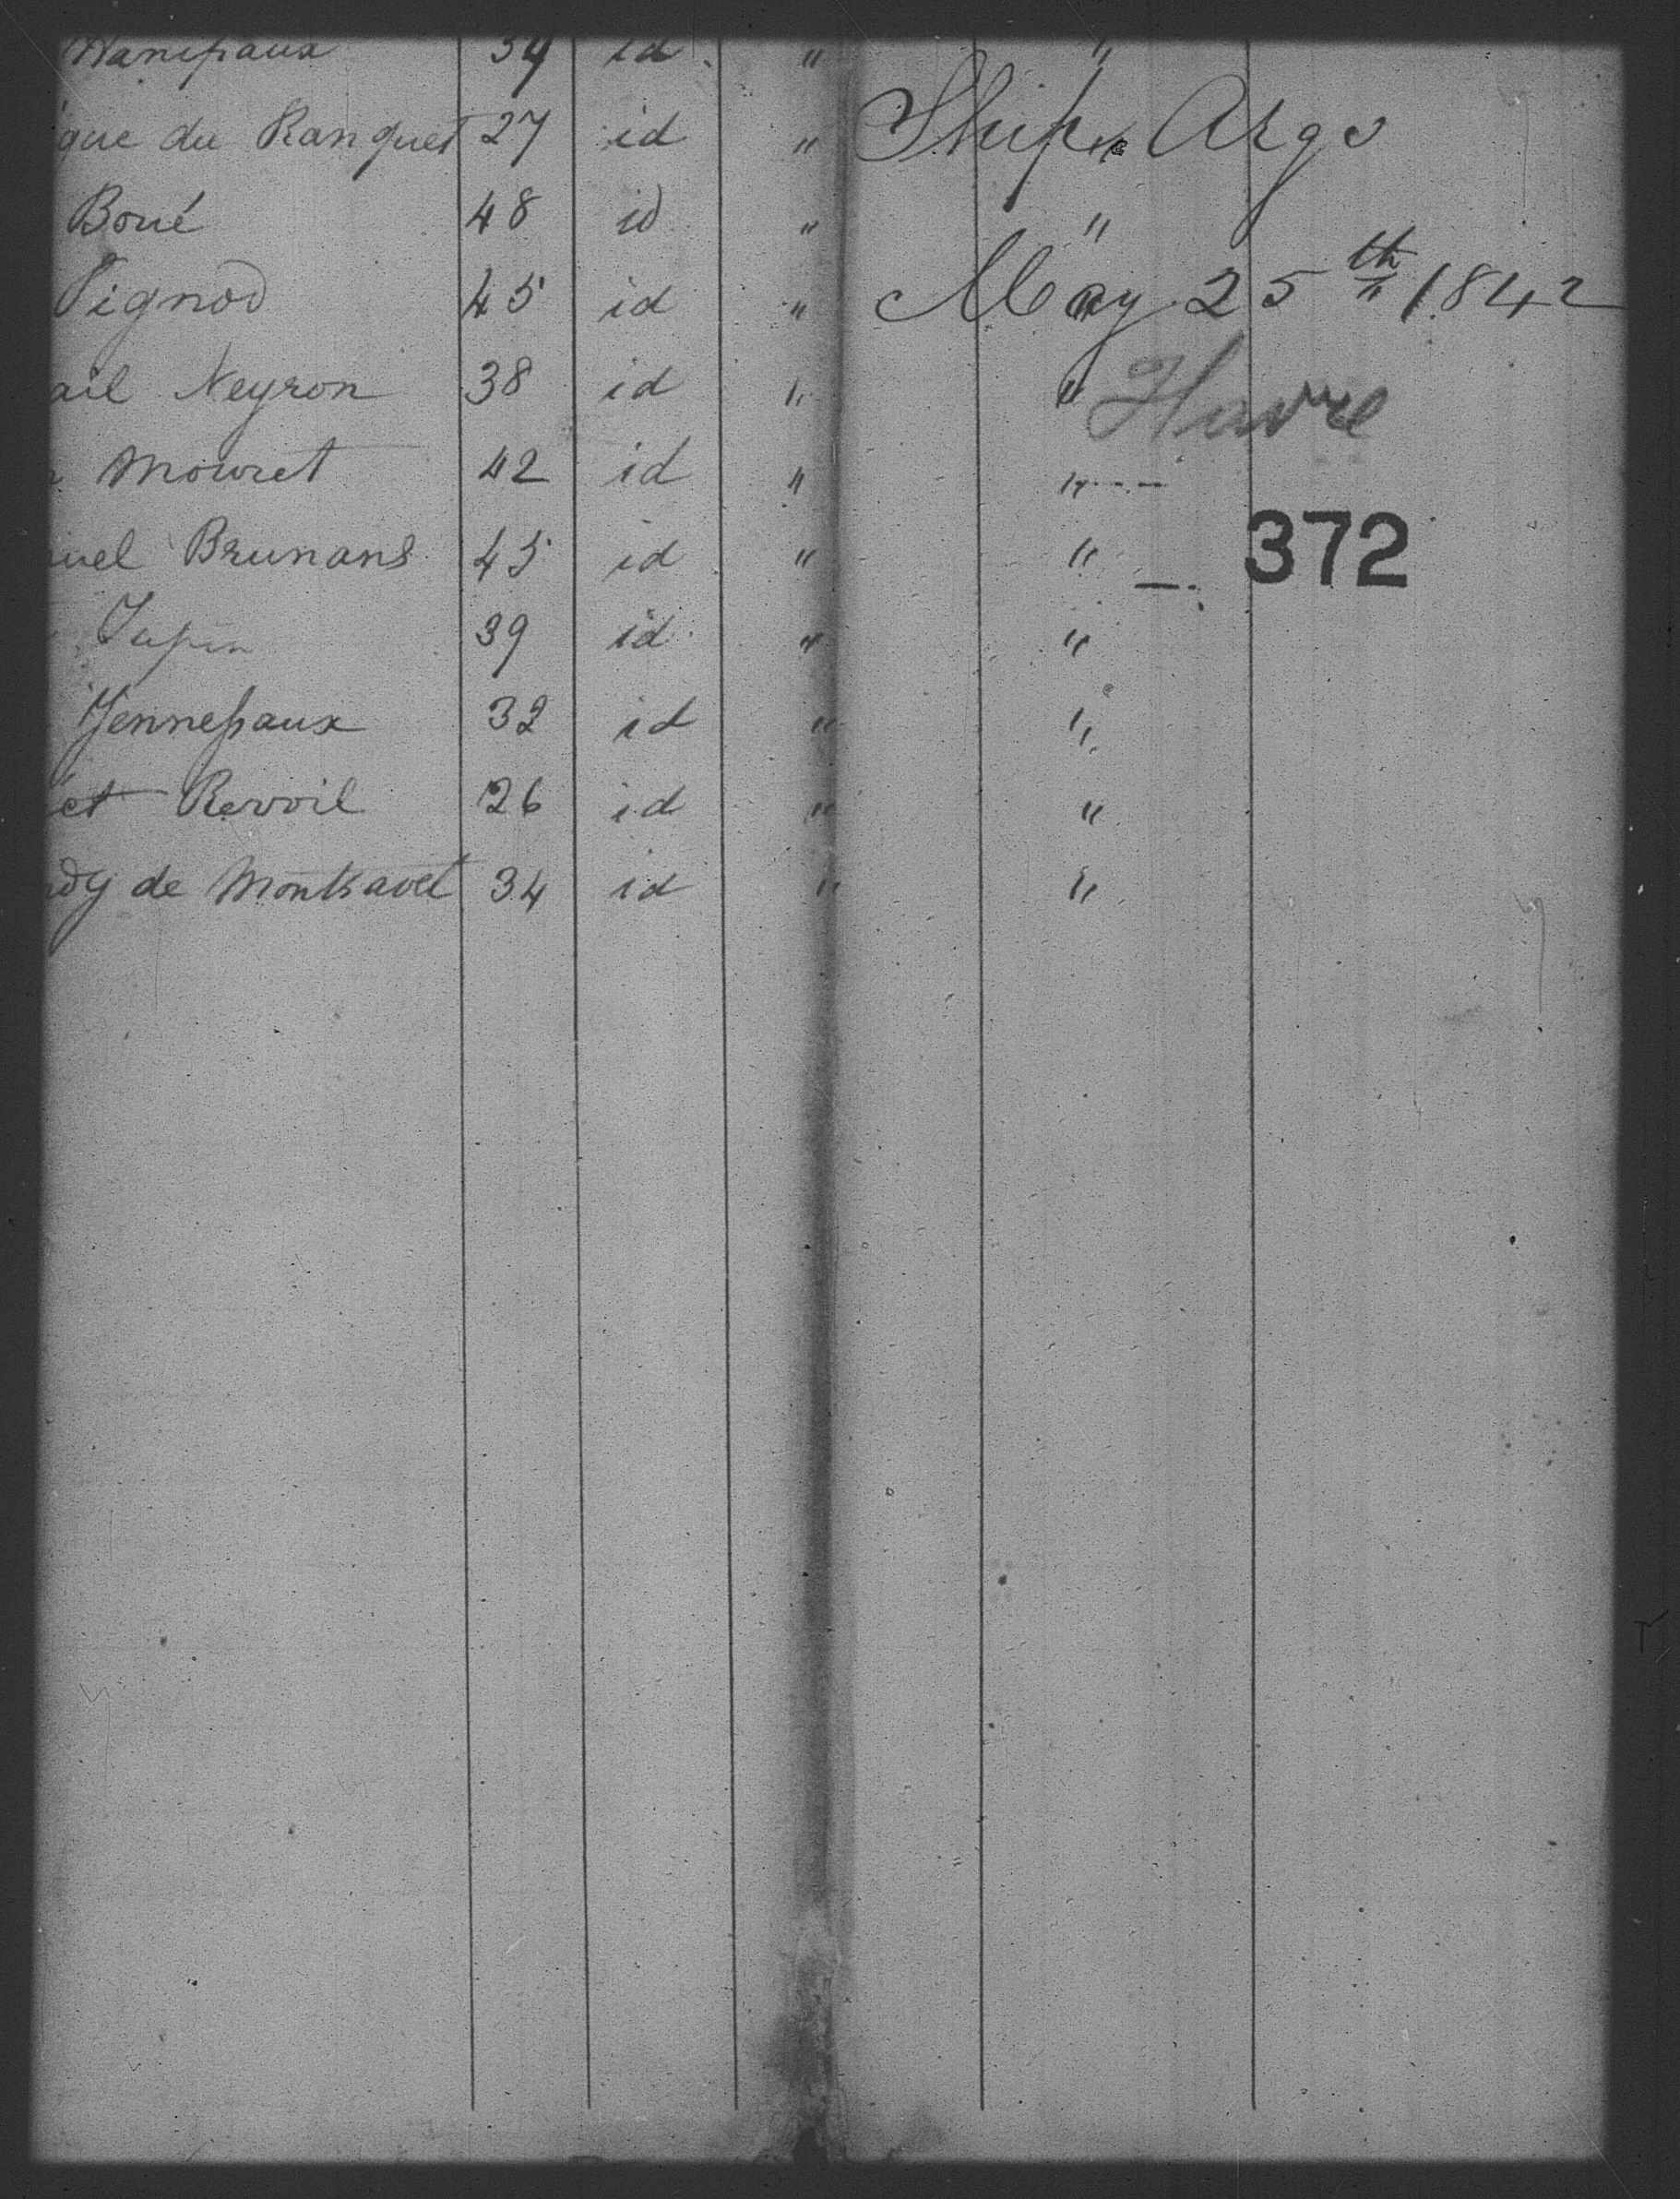 Hanipaux 34 id. " "
ique du Ranquet 27 id " "
Boué 48 id " "
Pignod 45 id " "
ail Neyron 38 id " "
Mouret 42 id " "
uel Brunans 45 id " "
Jupin 39 id " "
Jennepaux 32 id " "
et Revoil 26 id " "
dy de Montsavet 34 id " "
Ship Argo
May 25th 1842
Havre
372